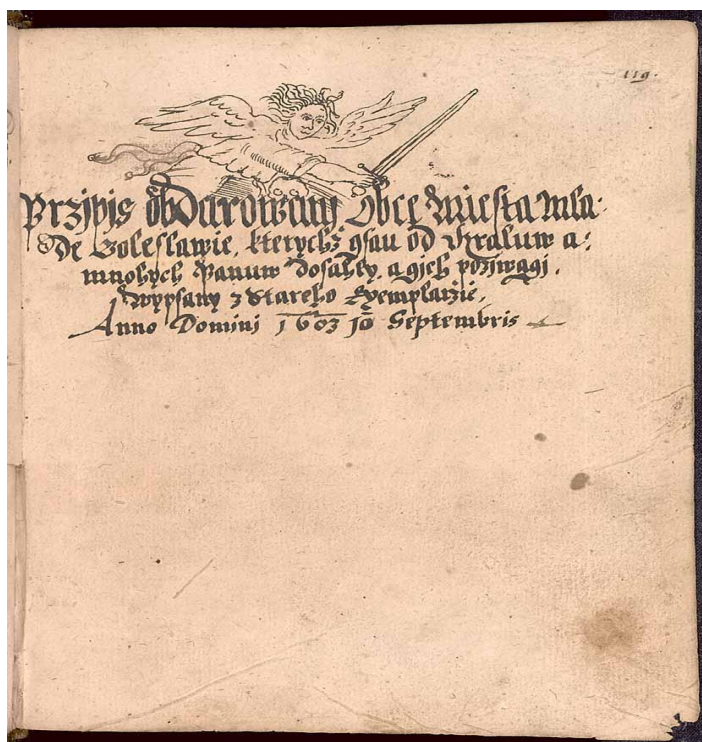 119.
Przipis obdarowani Obce Miesta Mla-
de Boleslawie, kterychž gsau od Kraluw a,
mnohych Panuw dosahly, a gich požiwagi,
Wypsany z Stareho Exemplarzie,
Anno Domini 1603 10 Septembris